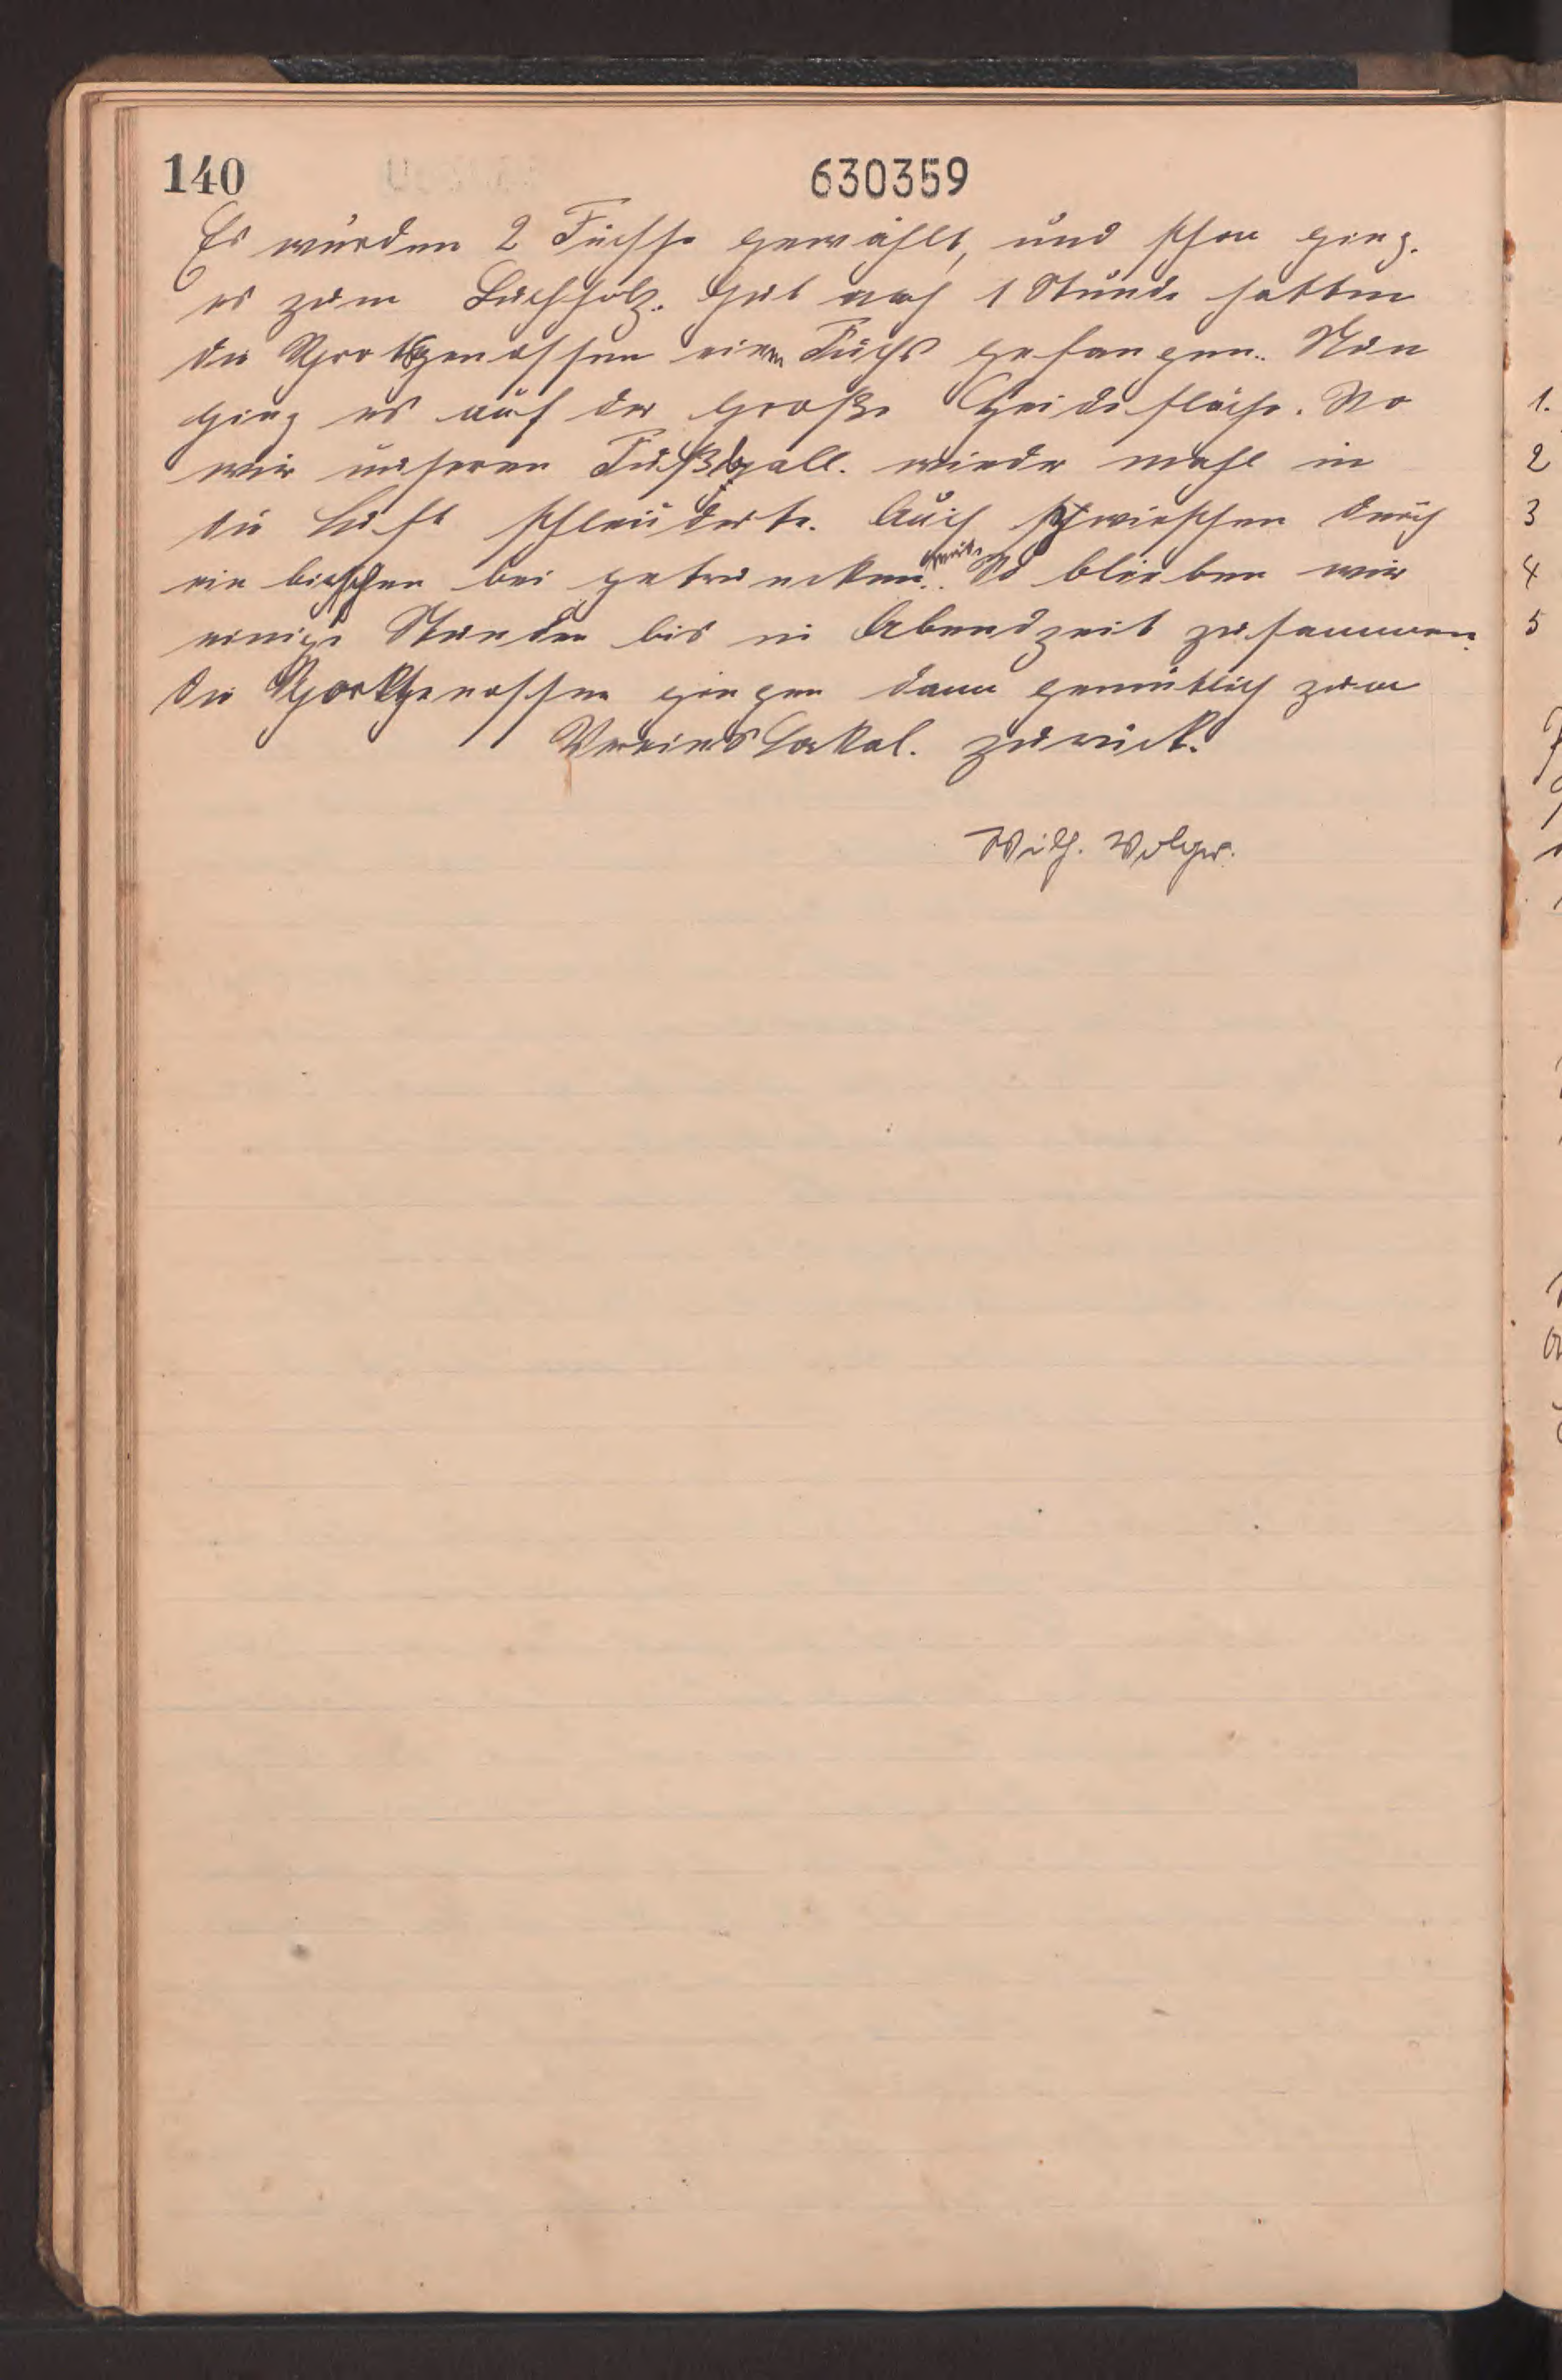 140
630359
Es wurden 2 Füchse gewählt, und schon ging.
es zum Buchholz. Gut nach 1 Stunde hatten
die Sportsgenossen einen Fuchs gefangen. Nun
ging es auf der große Heidefläche. Wo
wir unseren Fußball. wieder mahl in
die Luft schleuderte. Auch zwieschen durch
ein bieschen bei getruncken wurde. So blieben wir
einige Stunden bis in Abendzeit zusammen.
Die Sportgenossen gingen dann gemütlich zum
Vereinslokal. zurück.
Wilh. Volger.
1.
2
3
4
5